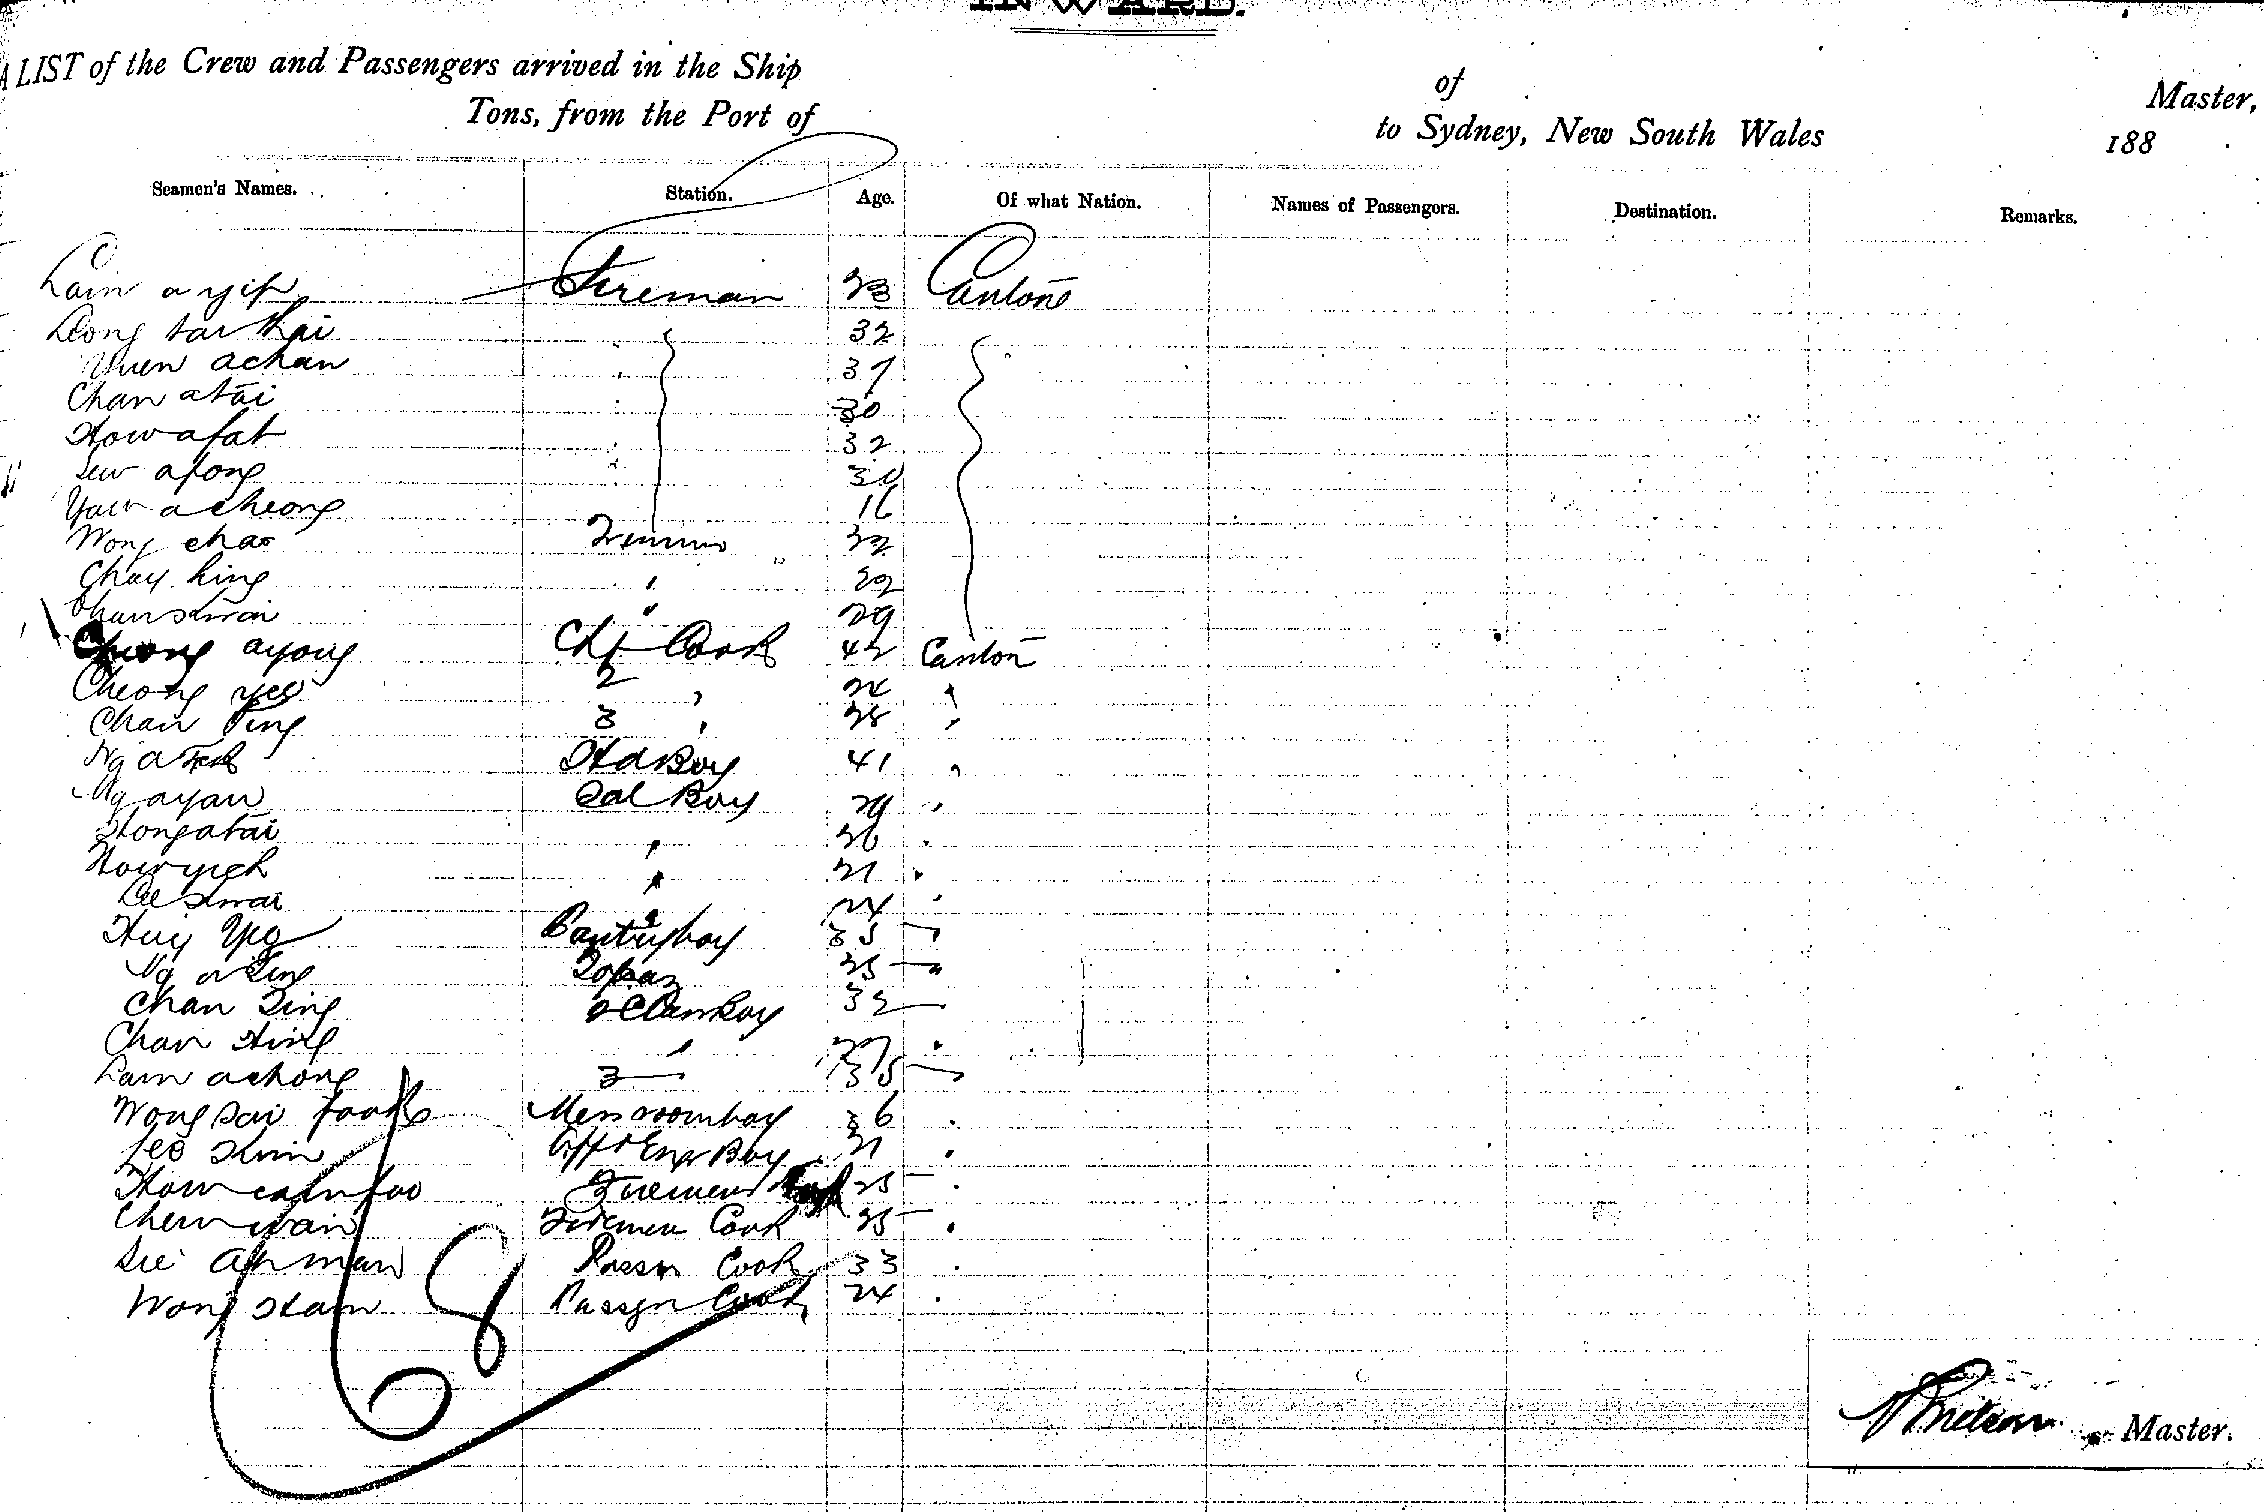 INWARD.
A LIST of the Crew and Passengers arrived in the Ship of Master,
Tons, from the Port of to Sydney, New South Wales 188
Seamen's Names. Station. Age. Of what Nation. Names of Passengers. Destination. Remarks.
Lam a yip Fireman 23 Canton
Leong tai Khai 32
Yuen achan 37
Chan atai 30
How afat 32
Lew afong 30
Yaw acheong 16
Wong chao 32
Chay hing 22
Chan 29
Cheong ayong Chf Cook 42 Canton
Cheong yee 2 " 24 "
Chan Ping 3 " 28 "
Ng a Hd Boy 41 "
Ng ayan Sal Boy 29 "
Hongatai " 26 "
How yick " 21 "
Lee " 24 "
Huy Pantryboy 35 "
Ng a Topaz 25 "
Chan Ting 2 Clan Boy 32
Chan Hing " 27 "
Lam achong 3 35 "
Wong sai fook Messroomboy 36 "
Lee Off & Engr Boy 21 "
How Firemens 25 "
Chew wan Firemen Cook 25 "
Lee Ah man Passn Cook 33 "
Wong Passgn Cook 24 "
Master.